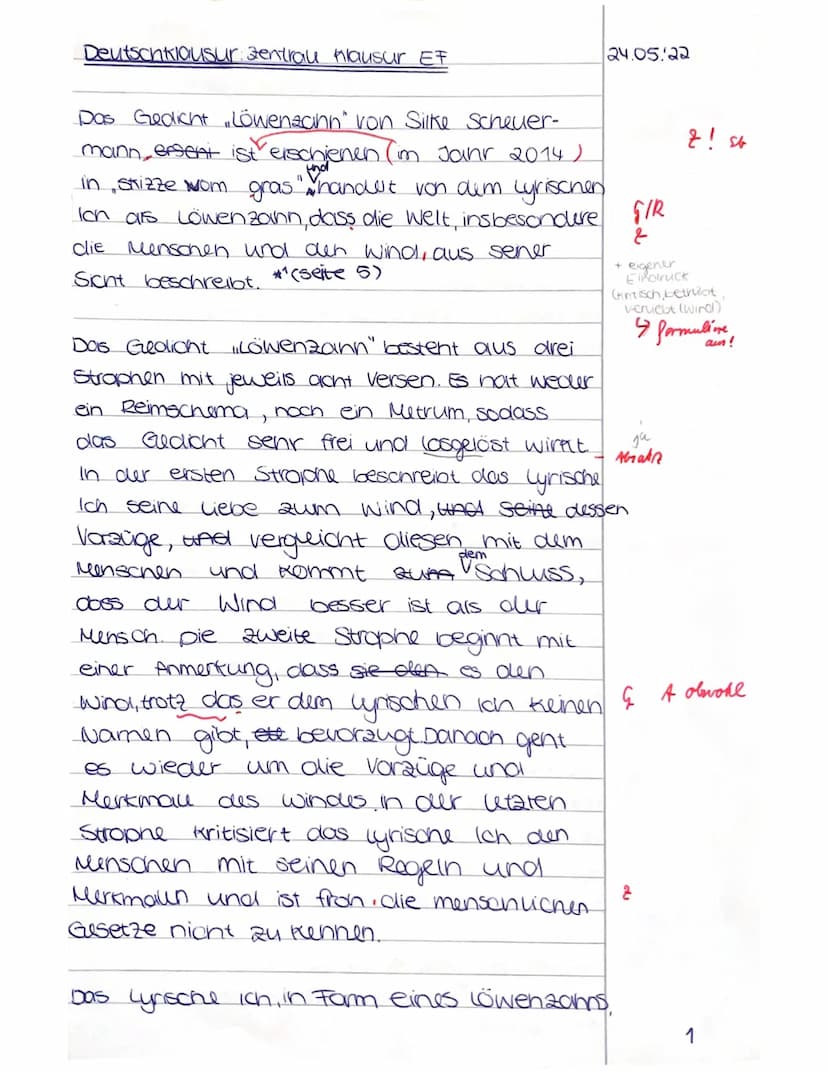 Deutschklausur: Zentral Klausur EF
24.05.'22
Das Gedicht „Löwenzahn" von Silke Scheuer-
mann, ersent ist erschienen (im Jahr 2014)
Z! Sb
in „skizze vom gras" und handelt von dem lyrischen
Ich als Löwenzahn, dass die Welt, insbesondere
G/R
Z
die Menschen und den Wind, aus seiner
Sicht beschreibt. *¹ (seite 5)
+ eigener
Eindruck
(kritisch, betrübt,
verliebt (wind)
↳ formuliere
aus!
Das Gedicht „Löwenzahn" besteht aus drei
Strophen mit jeweils acht Versen. Es hat weder
ein Reimschema, noch ein Metrum, sodass
das Gedicht sehr frei und losgelöst wirkt.
ja
Absatz
In der ersten Strophe beschreibt das lyrische
Ich seine Liebe zum Wind, und seine dessen
Vorzüge, und vergleicht diesen mit dem
Menschen und kommt zum dem Schluss,
dass der Wind besser ist als der
Mensch. Die zweite Strophe beginnt mit
einer Anmerkung, dass sie den es den
Wind, trotz das er dem lyrischen Ich keinen
G A obwohl
Namen gibt, bevorzugt. Danach geht
es wieder um die Vorzüge und
Merkmale des Windes. In der letzten
Strophe kritisiert das lyrische Ich den
Menschen mit seinen Regeln und
Merkmalen und ist froh, die menschlichen
Z
Gesetze nicht zu kennen.
Das Lyrische Ich, in Form eines Löwenzahns,
1